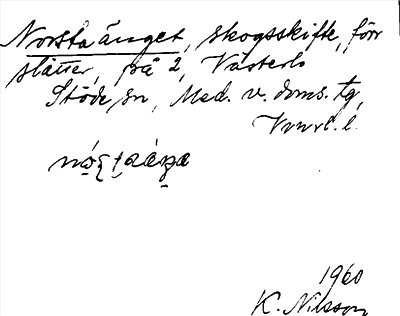 Norstaänget, skogsskifte, förr
slåtter, på 2, Västerlo
Stöde sn, Med. v. doms. tg,
1960
K. Nilsson